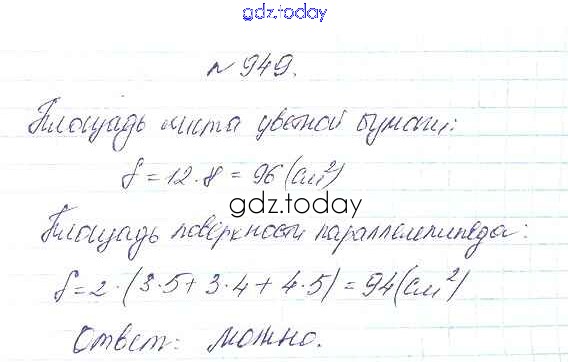 gdz.today
№ 949.
Площадь листа цветной бумаги:
S = 12 · 8 = 96 (см²)
gdz.today
Площадь поверхности параллелепипеда:
S = 2 · (3·5 + 3·4 + 4·5) = 94 (см²)
Ответ: можно.